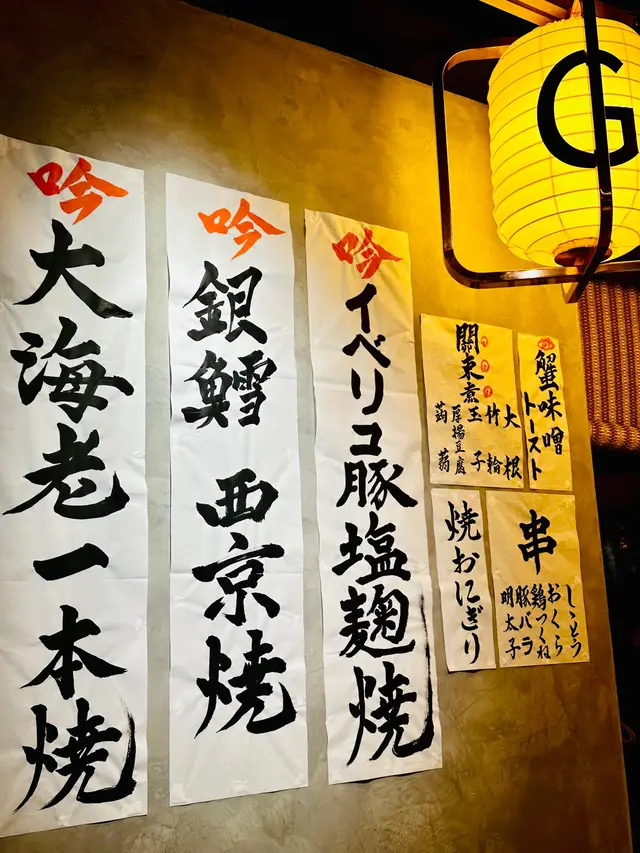 吟
大海老一本焼
吟
銀鱈 西京焼
吟
イベリコ豚塩麹焼
關東煮
大根
竹輪
玉子
厚揚豆腐
蒟蒻
蟹味噌
トースト
焼おにぎり
串
しゝとう
おくら
鶏つくね
豚バラ
明太子
G